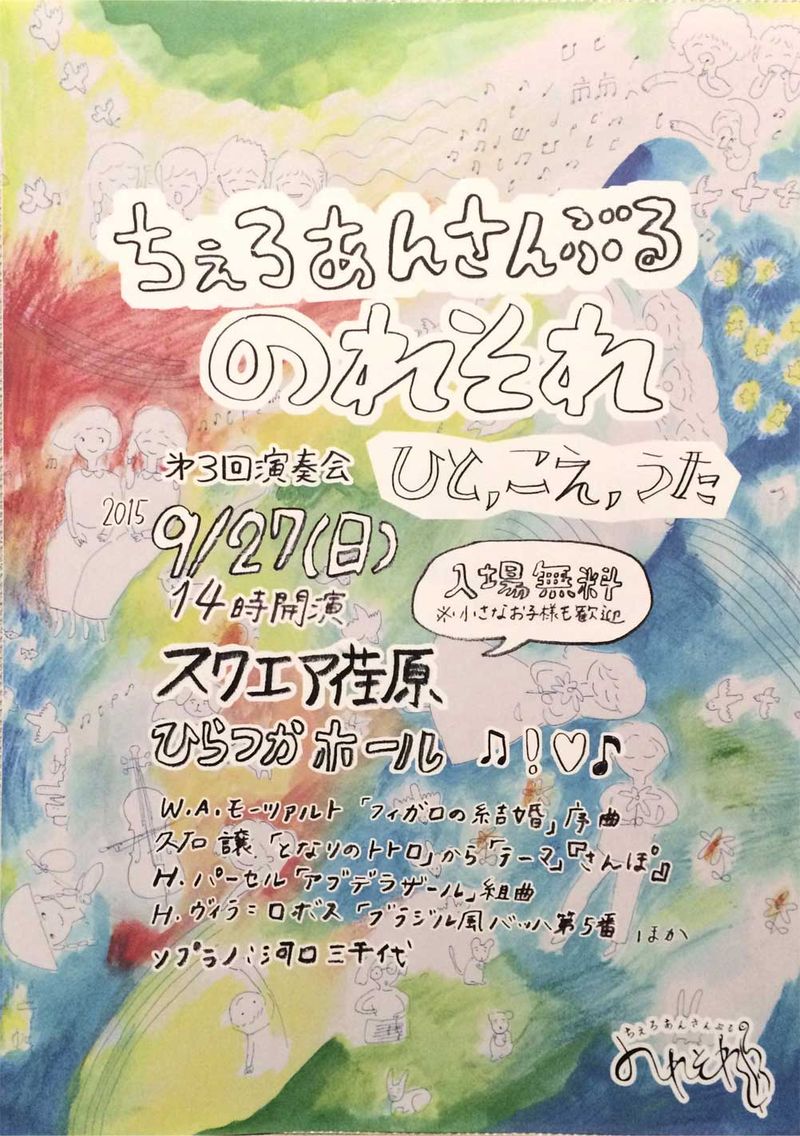 ちぇろあんさんぶる
のれそれ
第3回演奏会
ひと,こえ,うた
2015
9/27(日)
14時開演
入場無料
※小さなお子様も歓迎
スクエア荏原
ひらつかホール ♫!♡♪
W.A.モーツァルト「フィガロの結婚」序曲
久石 譲「となりのトトロ」から「テーマ」『さんぽ』
H.パーセル「アブデラザール」組曲
H.ヴィラ=ロボス「ブラジル風バッハ第5番 ほか
ソプラノ:河口三千代
ちぇろあんさんぶる
のれそれ